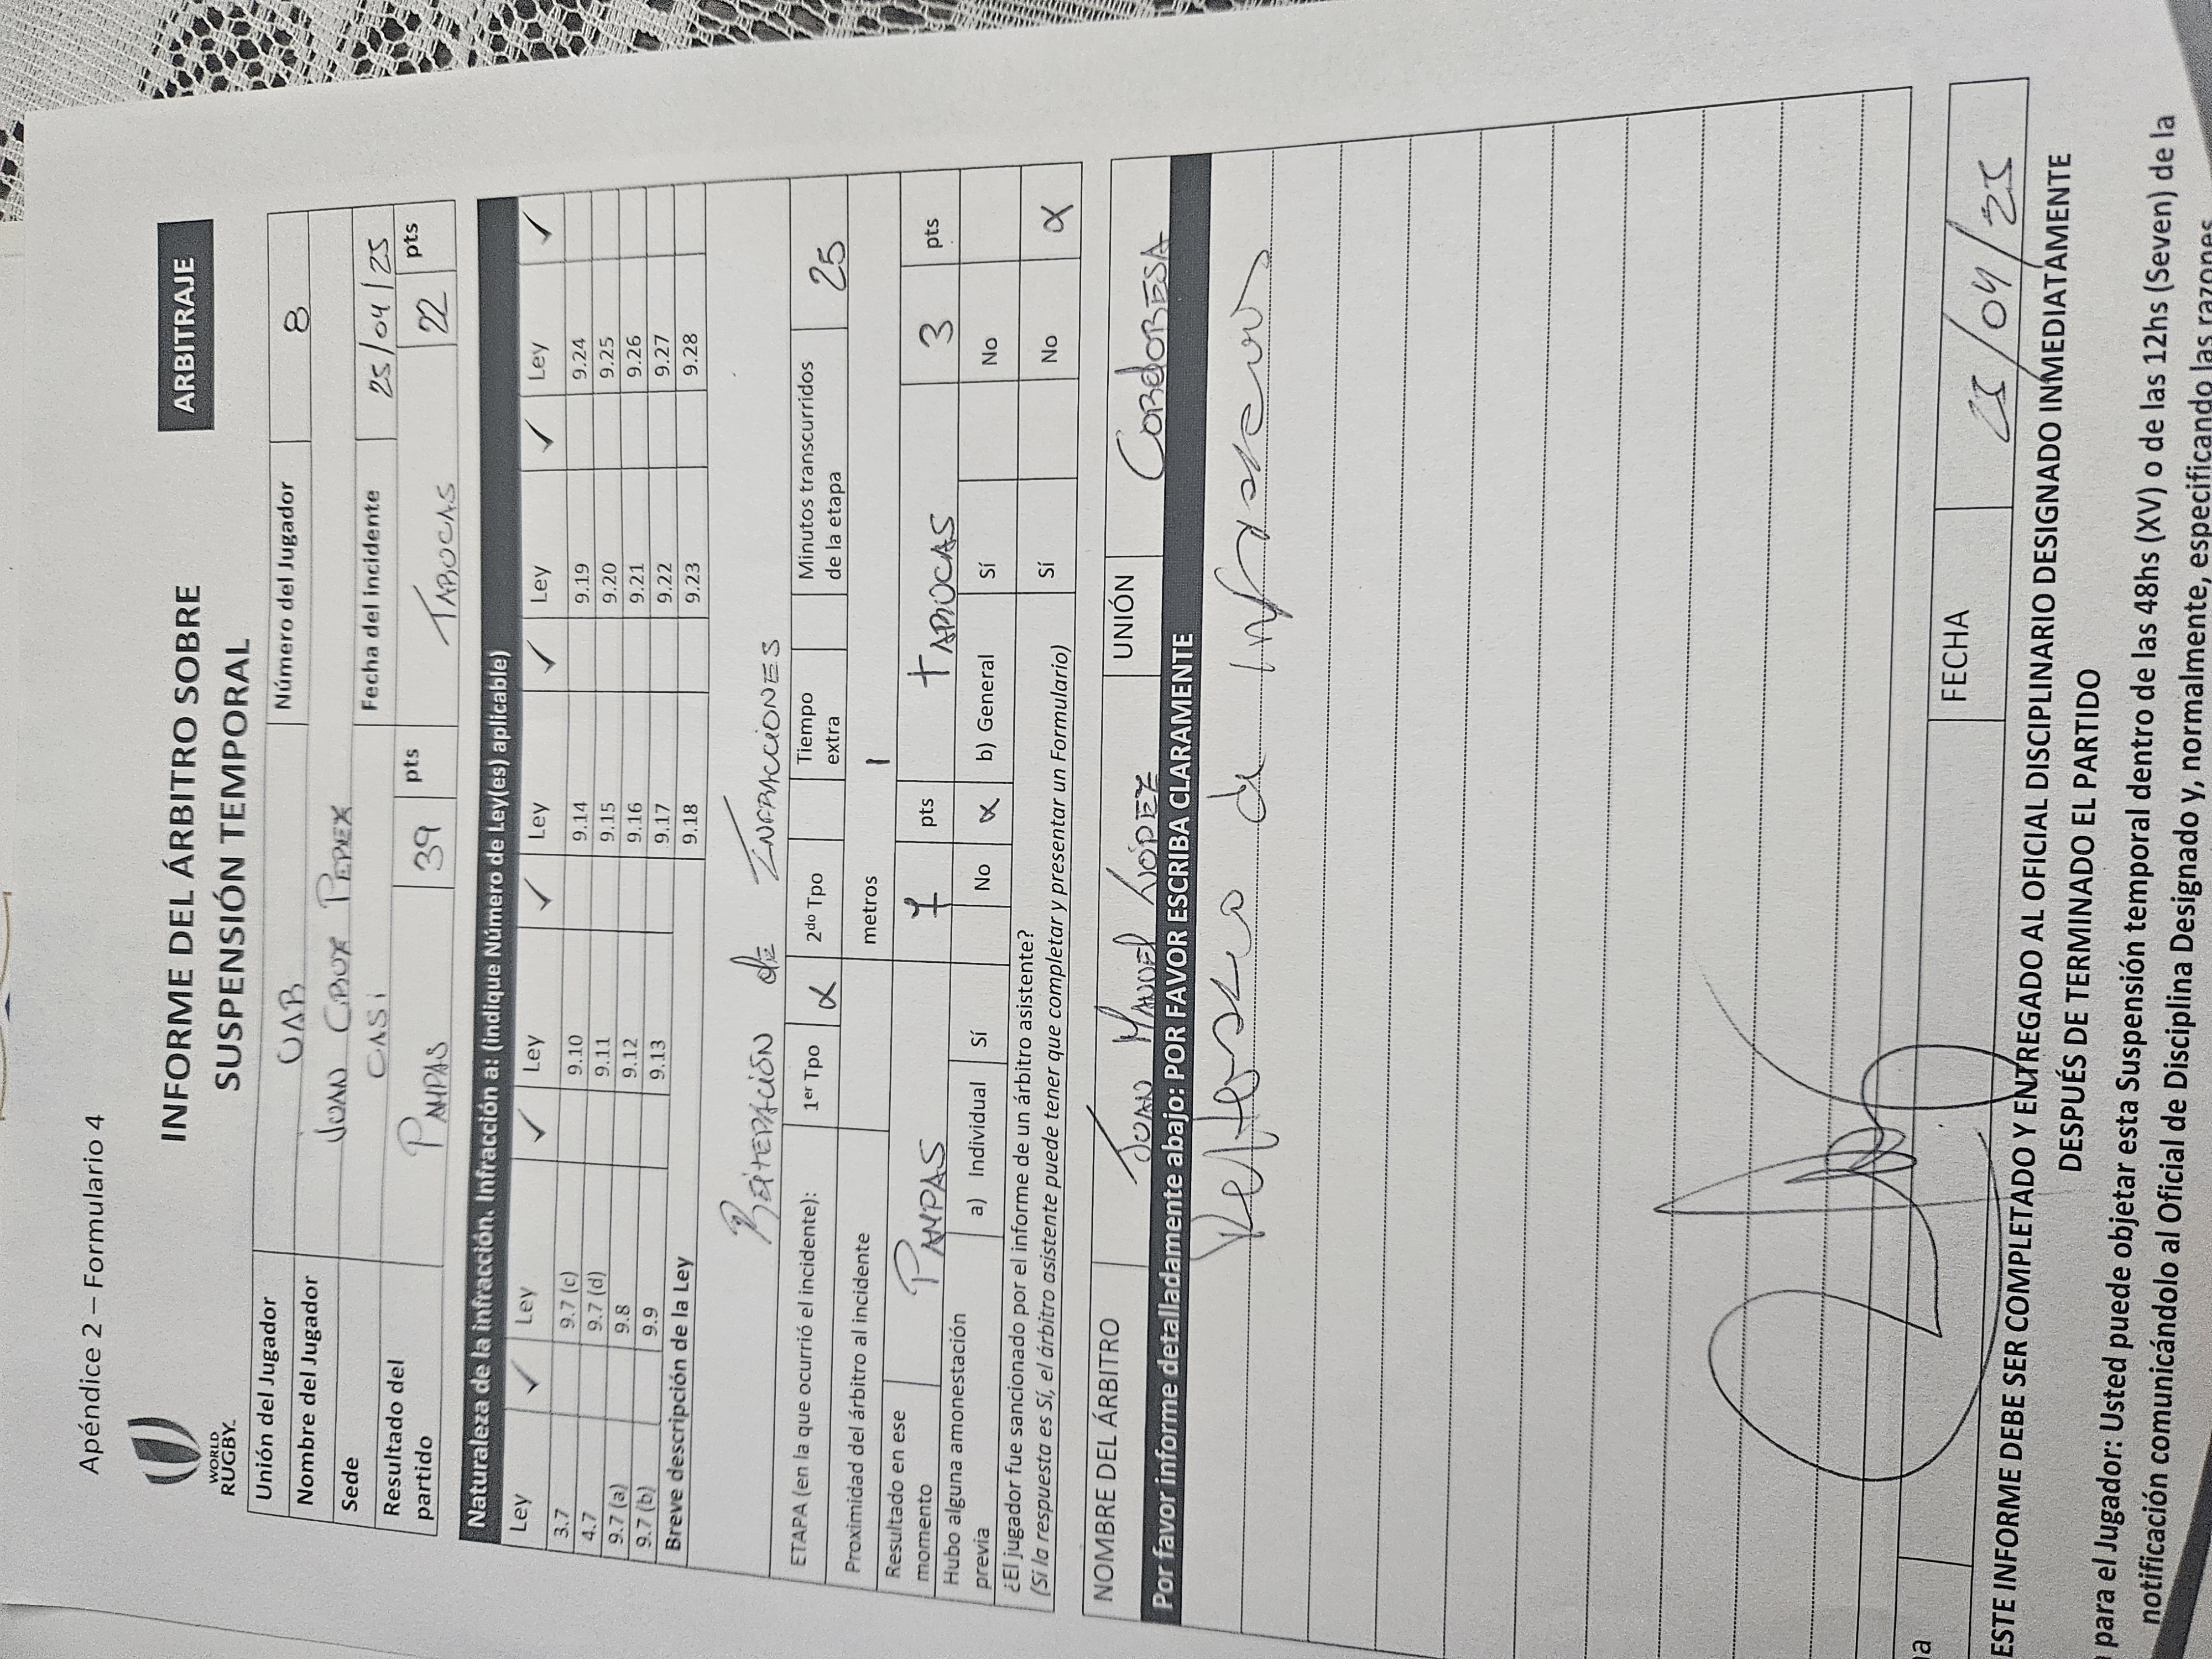 Apéndice 2 – Formulario 4
WORLD
RUGBY.
INFORME DEL ÁRBITRO SOBRE
SUSPENSIÓN TEMPORAL
ARBITRAJE
Unión del Jugador UAR Número del Jugador 8
Nombre del Jugador JUAN PEREZ
Sede CASI Fecha del incidente 25/04/25
Resultado del partido PAMPAS 39 pts TAROCAS 22 pts
Naturaleza de la infracción. Infracción a: (indique Número de Ley(es) aplicable)
Ley ✓ Ley ✓ Ley ✓ Ley ✓ Ley ✓ Ley ✓
3.7 9.7 (c) 9.10 9.14 9.19 9.24
4.7 9.7 (d) 9.11 9.15 9.20 9.25
9.7 (a) 9.8 9.12 9.16 9.21 9.26
9.7 (b) 9.9 9.13 9.17 9.22 9.27
Breve descripción de la Ley 9.18 9.23 9.28
REITERACIÓN de INFRACCIONES
ETAPA (en la que ocurrió el incidente): 1er Tpo X 2do Tpo Tiempo extra Minutos transcurridos de la etapa 25
Proximidad del árbitro al incidente metros 1
Resultado en ese momento PAMPAS 7 pts TAROCAS 3 pts
Hubo alguna amonestación previa a) Individual Sí No X b) General Sí No
¿El jugador fue sancionado por el informe de un árbitro asistente? Sí No X
(Si la respuesta es Sí, el árbitro asistente puede tener que completar y presentar un Formulario)
NOMBRE DEL ÁRBITRO JUAN MANUEL LÓPEZ UNIÓN CORDOBESA
Por favor informe detalladamente abajo: POR FAVOR ESCRIBA CLARAMENTE
de
FECHA 25/04/25
ESTE INFORME DEBE SER COMPLETADO Y ENTREGADO AL OFICIAL DISCIPLINARIO DESIGNADO INMEDIATAMENTE
DESPUÉS DE TERMINADO EL PARTIDO
para el Jugador: Usted puede objetar esta Suspensión temporal dentro de las 48hs (XV) o de las 12hs (Seven) de la
notificación comunicándolo al Oficial de Disciplina Designado y, normalmente, especificando las razones